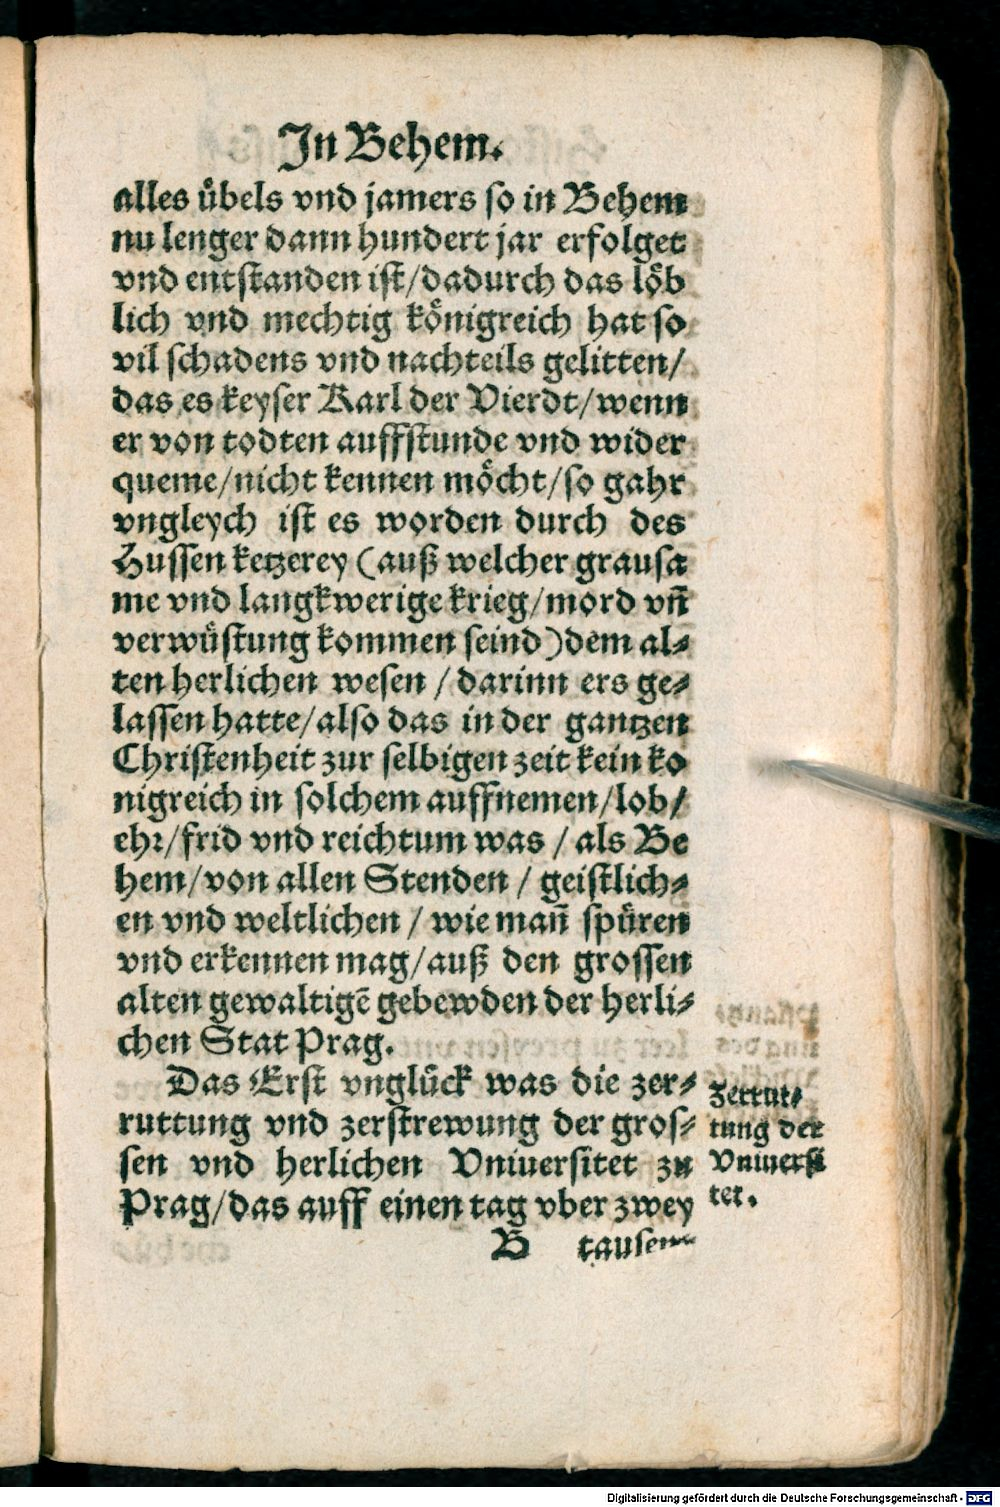 In Behem.
alles übels vnd jamers so in Behem
nu lenger dann hundert jar erfolget
vnd entstanden ist/dadurch das löb
lich vnd mechtig königreich hat so
vil schadens vnd nachteils gelitten/
das es keyser Karl der Vierdt/wenn
er von todten auffstunde vnd wider
queme/nicht kennen möcht/so gahr
vngleych ist es worden durch des
Hussen ketzerey (auß welcher grausa
me vnd langkwerige krieg/mord vn̄
verwüstung kommen seind) dem al⸗
ten herlichen wesen / darinn ers ge⸗
lassen hatte/also das in der gantzen
Christenheit zur selbigen zeit kein ko
nigreich in solchem auffnemen/lob/
ehr/frid vnd reichtum was / als Be
hem/von allen Stenden / geistlich⸗
en vnd weltlichen / wie man̄ spüren
vnd erkennen mag/auß den grossen
alten gewaltigē gebewden der herli⸗
chen Stat Prag.
Das Erst vnglück was die zer⸗
ruttung vnd zerstrewung der gros⸗
sen vnd herlichen Vniuersitet zu
Prag/das auff einen tag vber zwey
Zerrut⸗
tung der
Vniuersi
tet.
B tausen
Digitalisierung gefördert durch die Deutsche Forschungsgemeinschaft - DFG